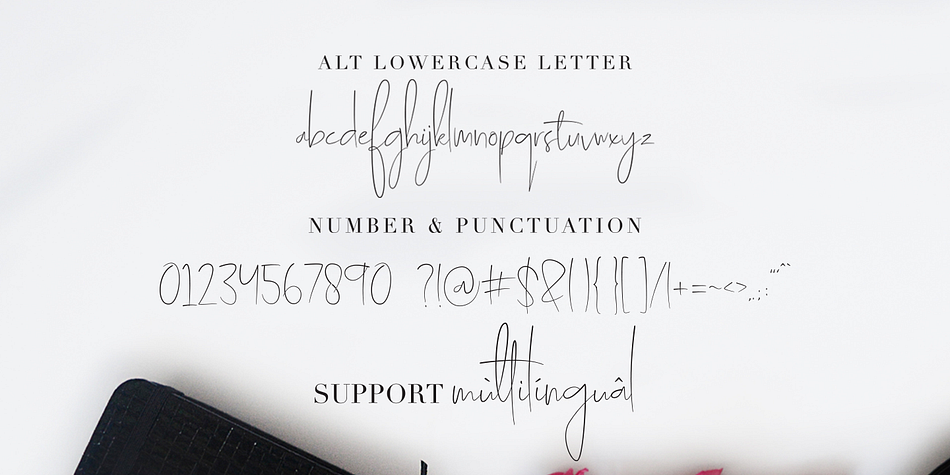 ALT LOWERCASE LETTER
abcdefghijklmnopqrstuvwxyz
NUMBER & PUNCTUATION
01234567890 ?!@#$&(){}[]/|+=~<>,.;:
SUPPORT mùltilínguâl